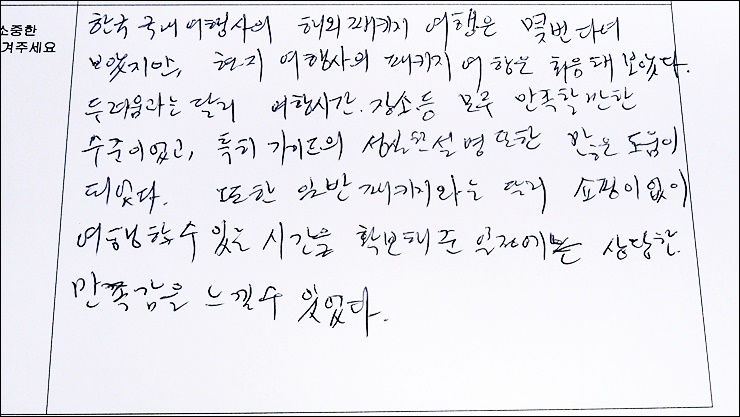 소중한
겨주세요
한국 국내여행사의 해외패키지 여행은 몇번 다녀
보았지만, 현지 여행사의 패키지여행은 처음해 보았다.
두려움과는 달리 여행시간. 장소등 모두 만족할만한
수준이었고, 특히 가이드의 성실한 설명 또한 많은 도움이
되었다. 또한 일반 패키지와는 달리 쇼핑이 없이
여행할수 있는 시간을 확보해준 일정에 상당한.
만족감을 느낄수 있었다.